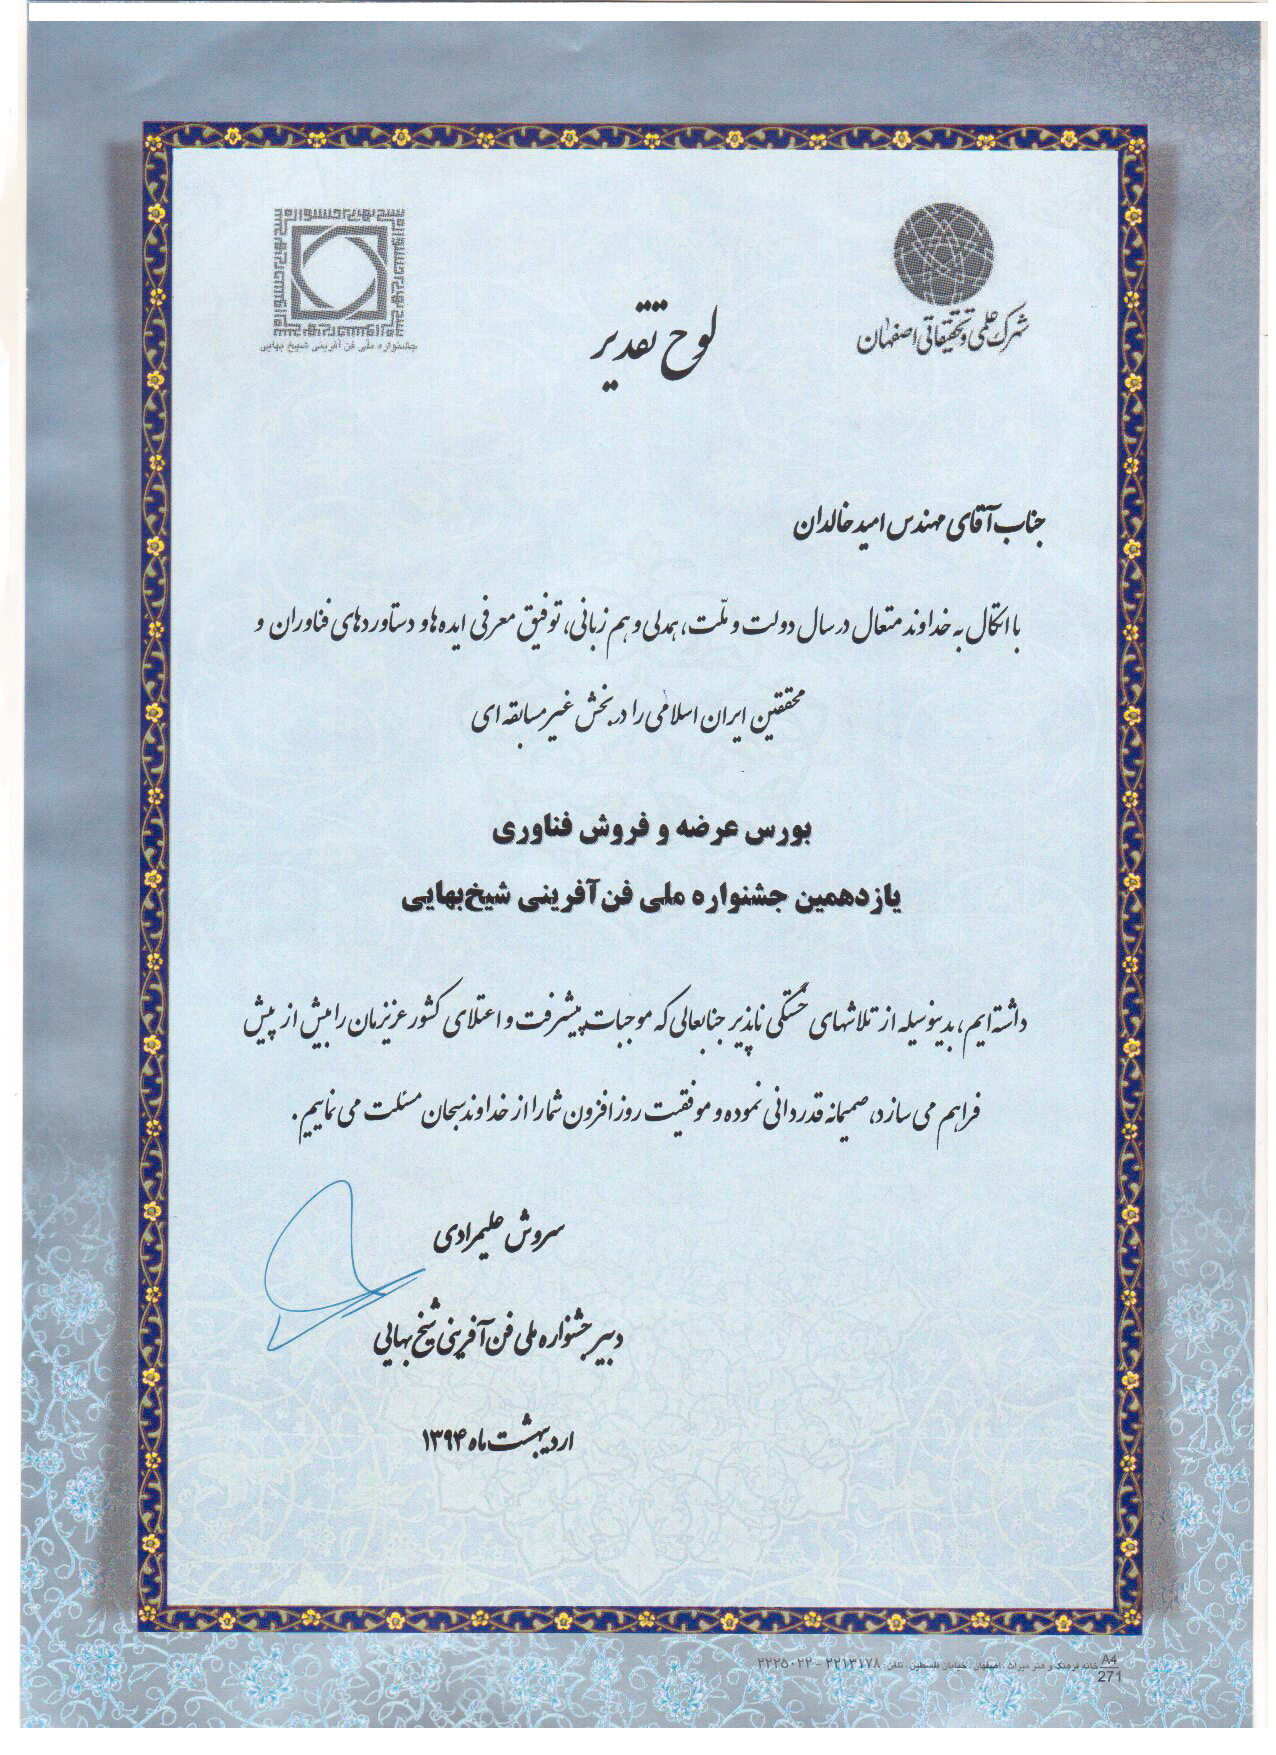 شهرک علمی و تحقیقاتی اصفهان
جشنواره ملی فن آفرینی شیخ بهایی
لوح تقدیر
جناب آقای مهندس امید خالدان
با اتکال به خداوند متعال در سال دولت و ملّت، همدلی و هم زبانی، توفیق معرفی ایده ها و دستاوردهای فناوران و
محققین ایران اسلامی را در بخش غیر مسابقه ای
بورس عرضه و فروش فناوری
یازدهمین جشنواره ملی فن‌آفرینی شیخ‌بهایی
داشته ایم، بدینوسیله از تلاشهای خستگی ناپذیر جنابعالی که موجبات پیشرفت و اعتلای کشور عزیزمان را بیش از پیش
فراهم می سازد، صمیمانه قدردانی نموده و موفقیت روز افزون شما را از خداوند سبحان مسئلت می نماییم.
سروش علیمرادی
دبیر جشنواره ملی فن آفرینی شیخ بهایی
اردیبهشت ماه ۱۳۹۴
خانه فرهنگ و هنر میراث. اصفهان. خیابان فلسطین. تلفن ۲۲۱۳۱۷۸ - ۲۲۲۵۰۲۲
A4
271